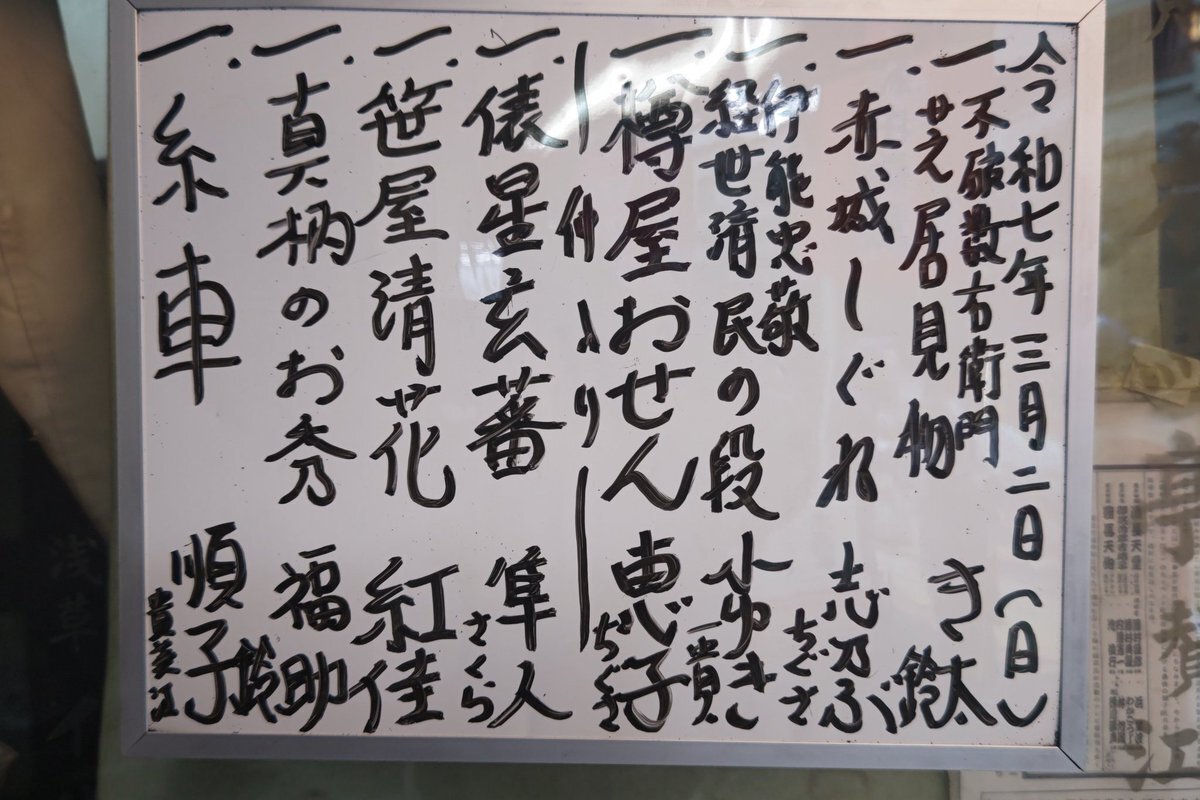 令和七年三月二日(日)
一.不破数右衛門
芝居見物 き太 鈴
一.赤城しぐれ 志乃ぶ ちぐさ
一.伊能忠敬
経世済民の段 小ゆき 一貴
一.樽屋おせん 恵子 ちぐさ
仲入り
一.俵星玄蕃 隼人 さくら
一.笹屋清花 紅佳
一.真柄のお秀 福助 鈴
一.糸車 順子 貴美江